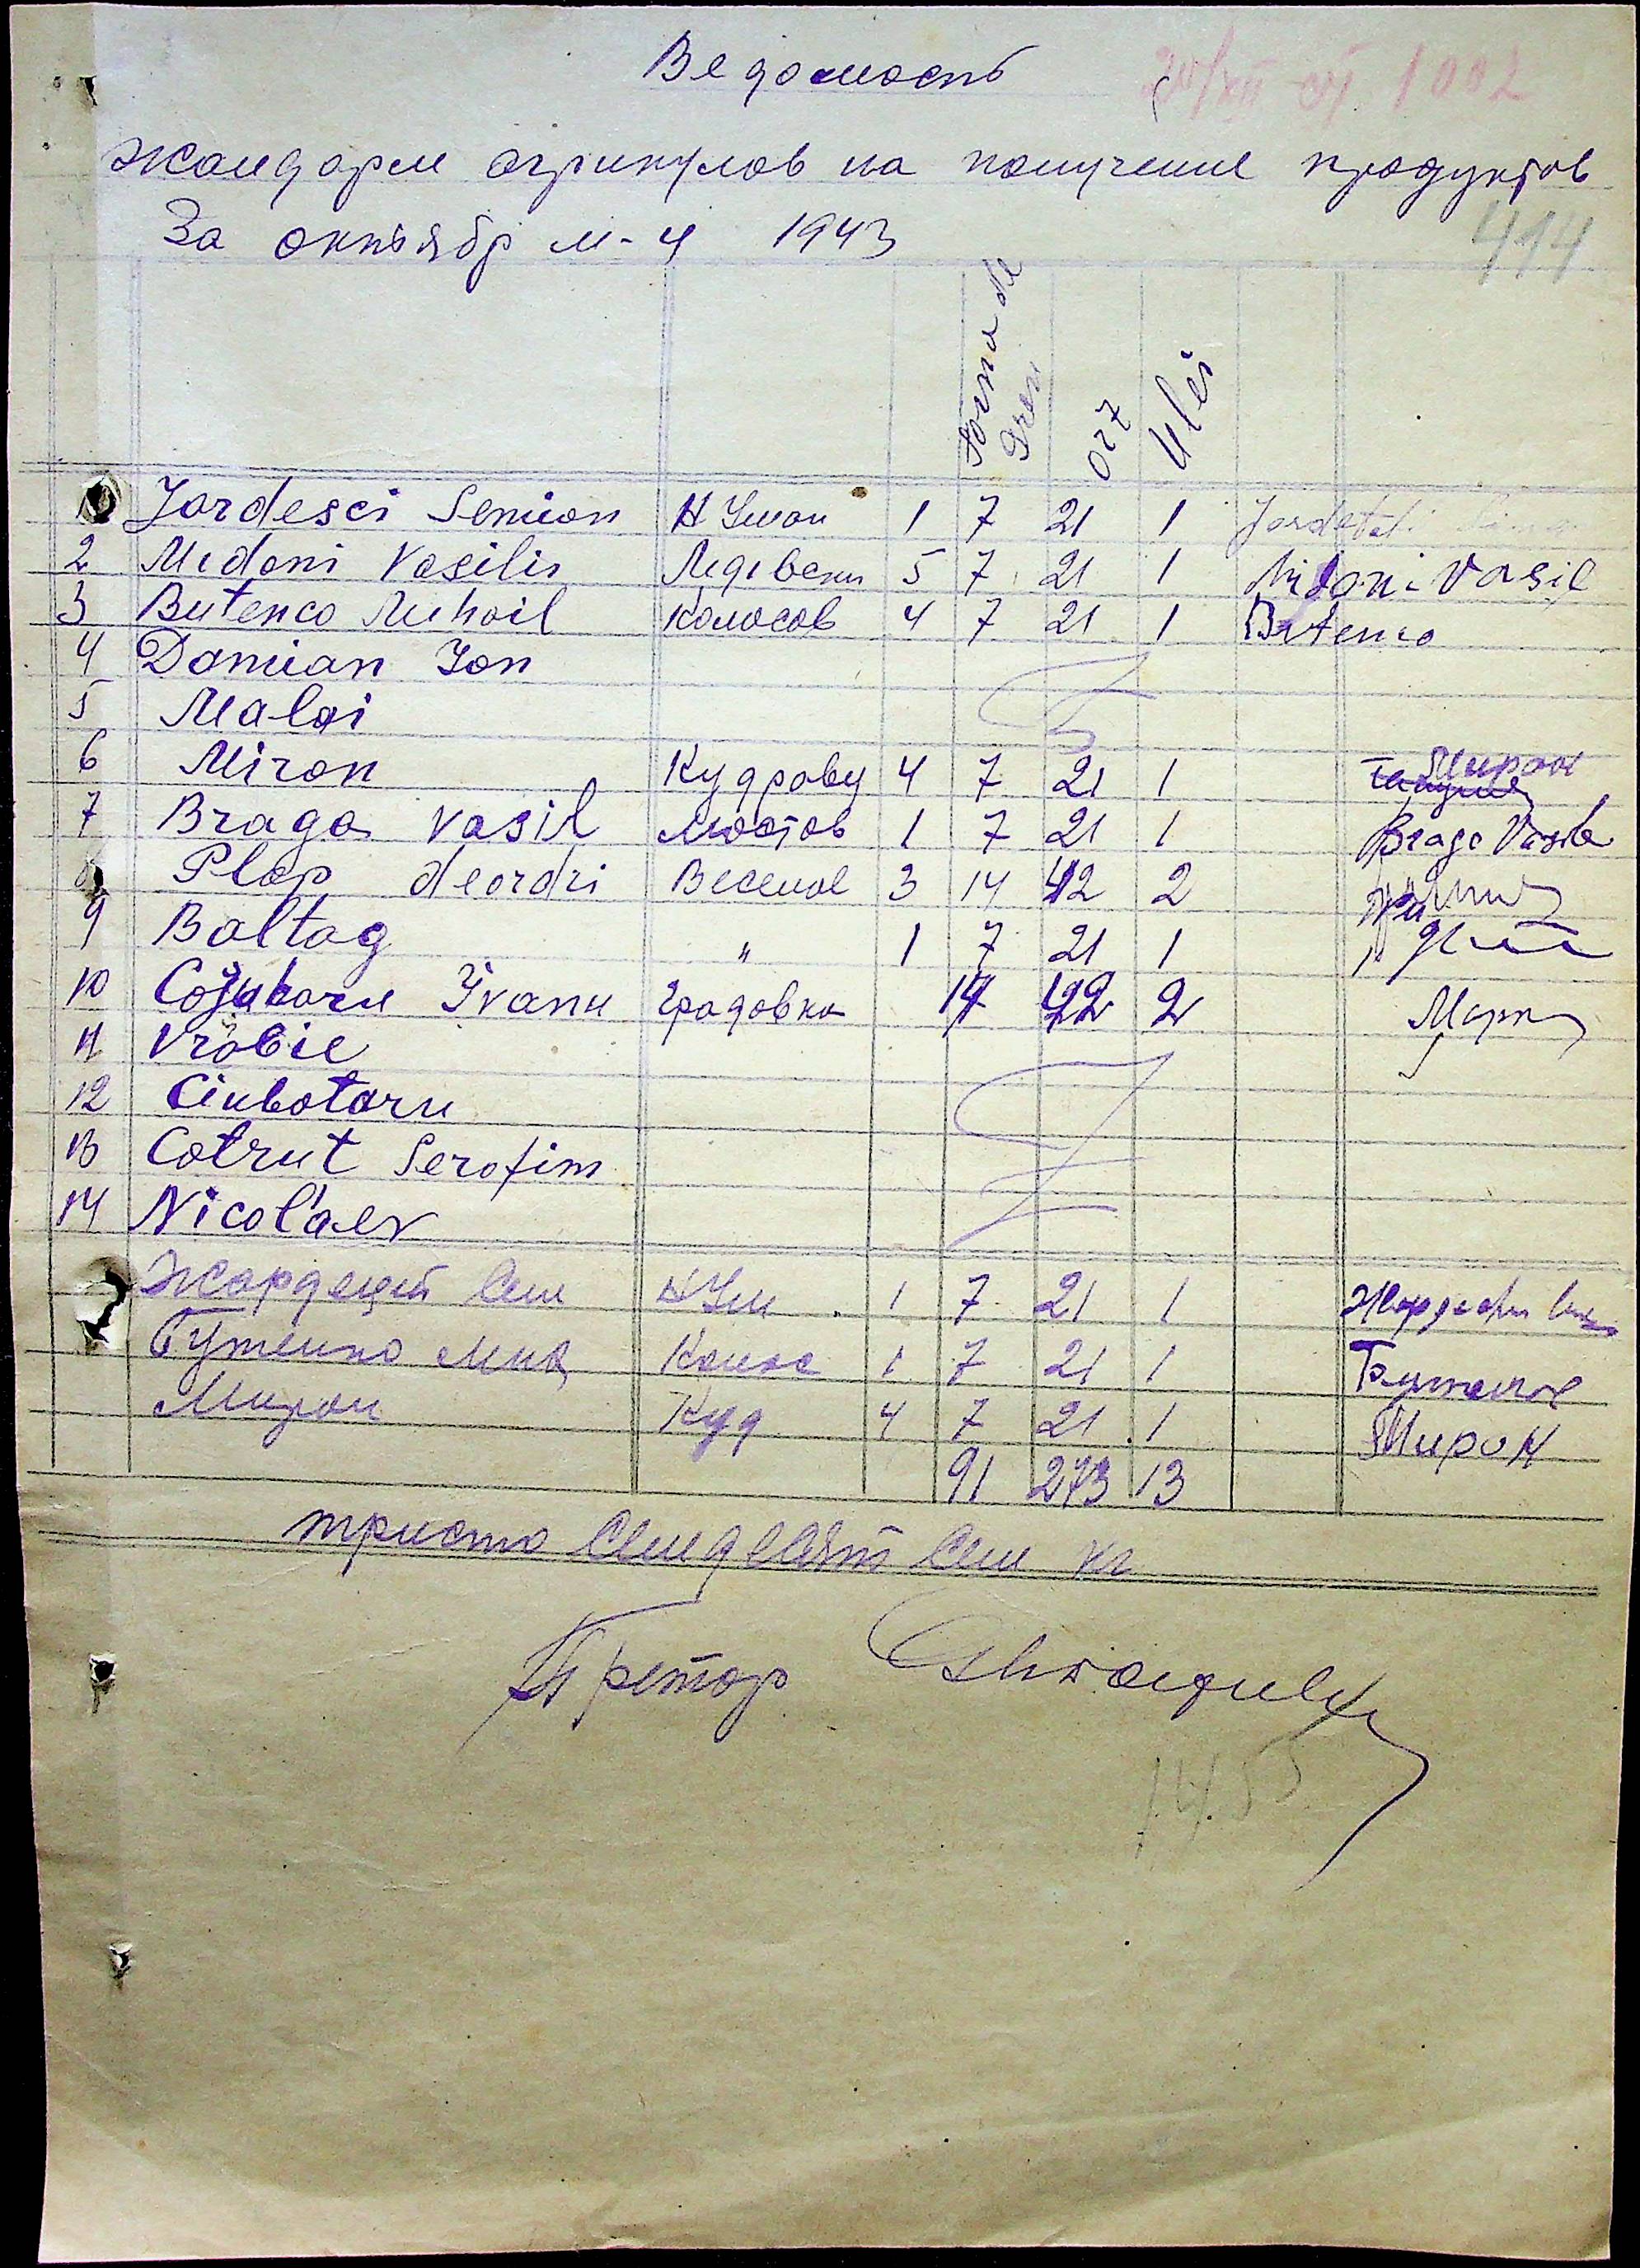 Ведомость
1002
жандарм агрикулов на получение продуктов
За октябр м-ц 1943
414
orz Ulei
1 Jardesci Semion Н Уман 1 7 21 1
2 Midoni Vasilii 5 7 21 1 Midoni Vasil
3 Butenco Mihail Колосов 4 7 21 1 Butenco
4 Damian Ion
5 Malai
6 Miron Кудрову 4 7 21 1 Мирон
7 Braga Vasil Мостов 1 7 21 1 Braga Vasile
8 Plop Веселое 3 14 42 2
9 Baltag " 1 7 21 1
10 Cojuharu Ivanu Градовка 14 42 2
11 Vrabie
12 Ciubotaru
13 Cotrut Serafim
14 Nicolaev
Жардецей Сем Н Ум 1 7 21 1
Бутенко Мих Колос 1 7 21 1 Бутенко
Мирон Куд 4 7 21 1 Мирон
91 273 13
триста Семдесят Сем кг
Претор
1455